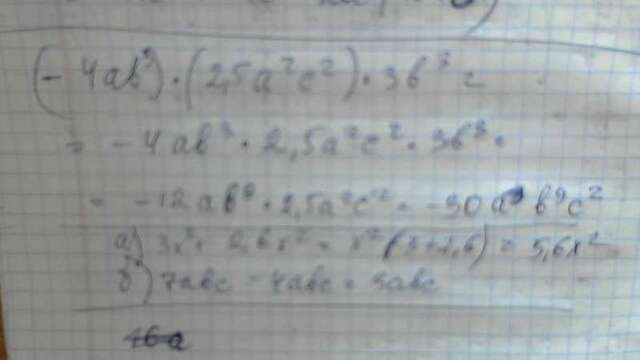 (- 4ab³) · (2,5a²c²) · 3b³ =
= - 4ab³ · 2,5a²c² · 3b³ =
= -12ab⁹ · 2,5a²c² = -30a³b⁹c²
а) 3x² + 2,6x² = x²(3+2,6) = 5,6x²
б) 7abc - 4abc = 3abc